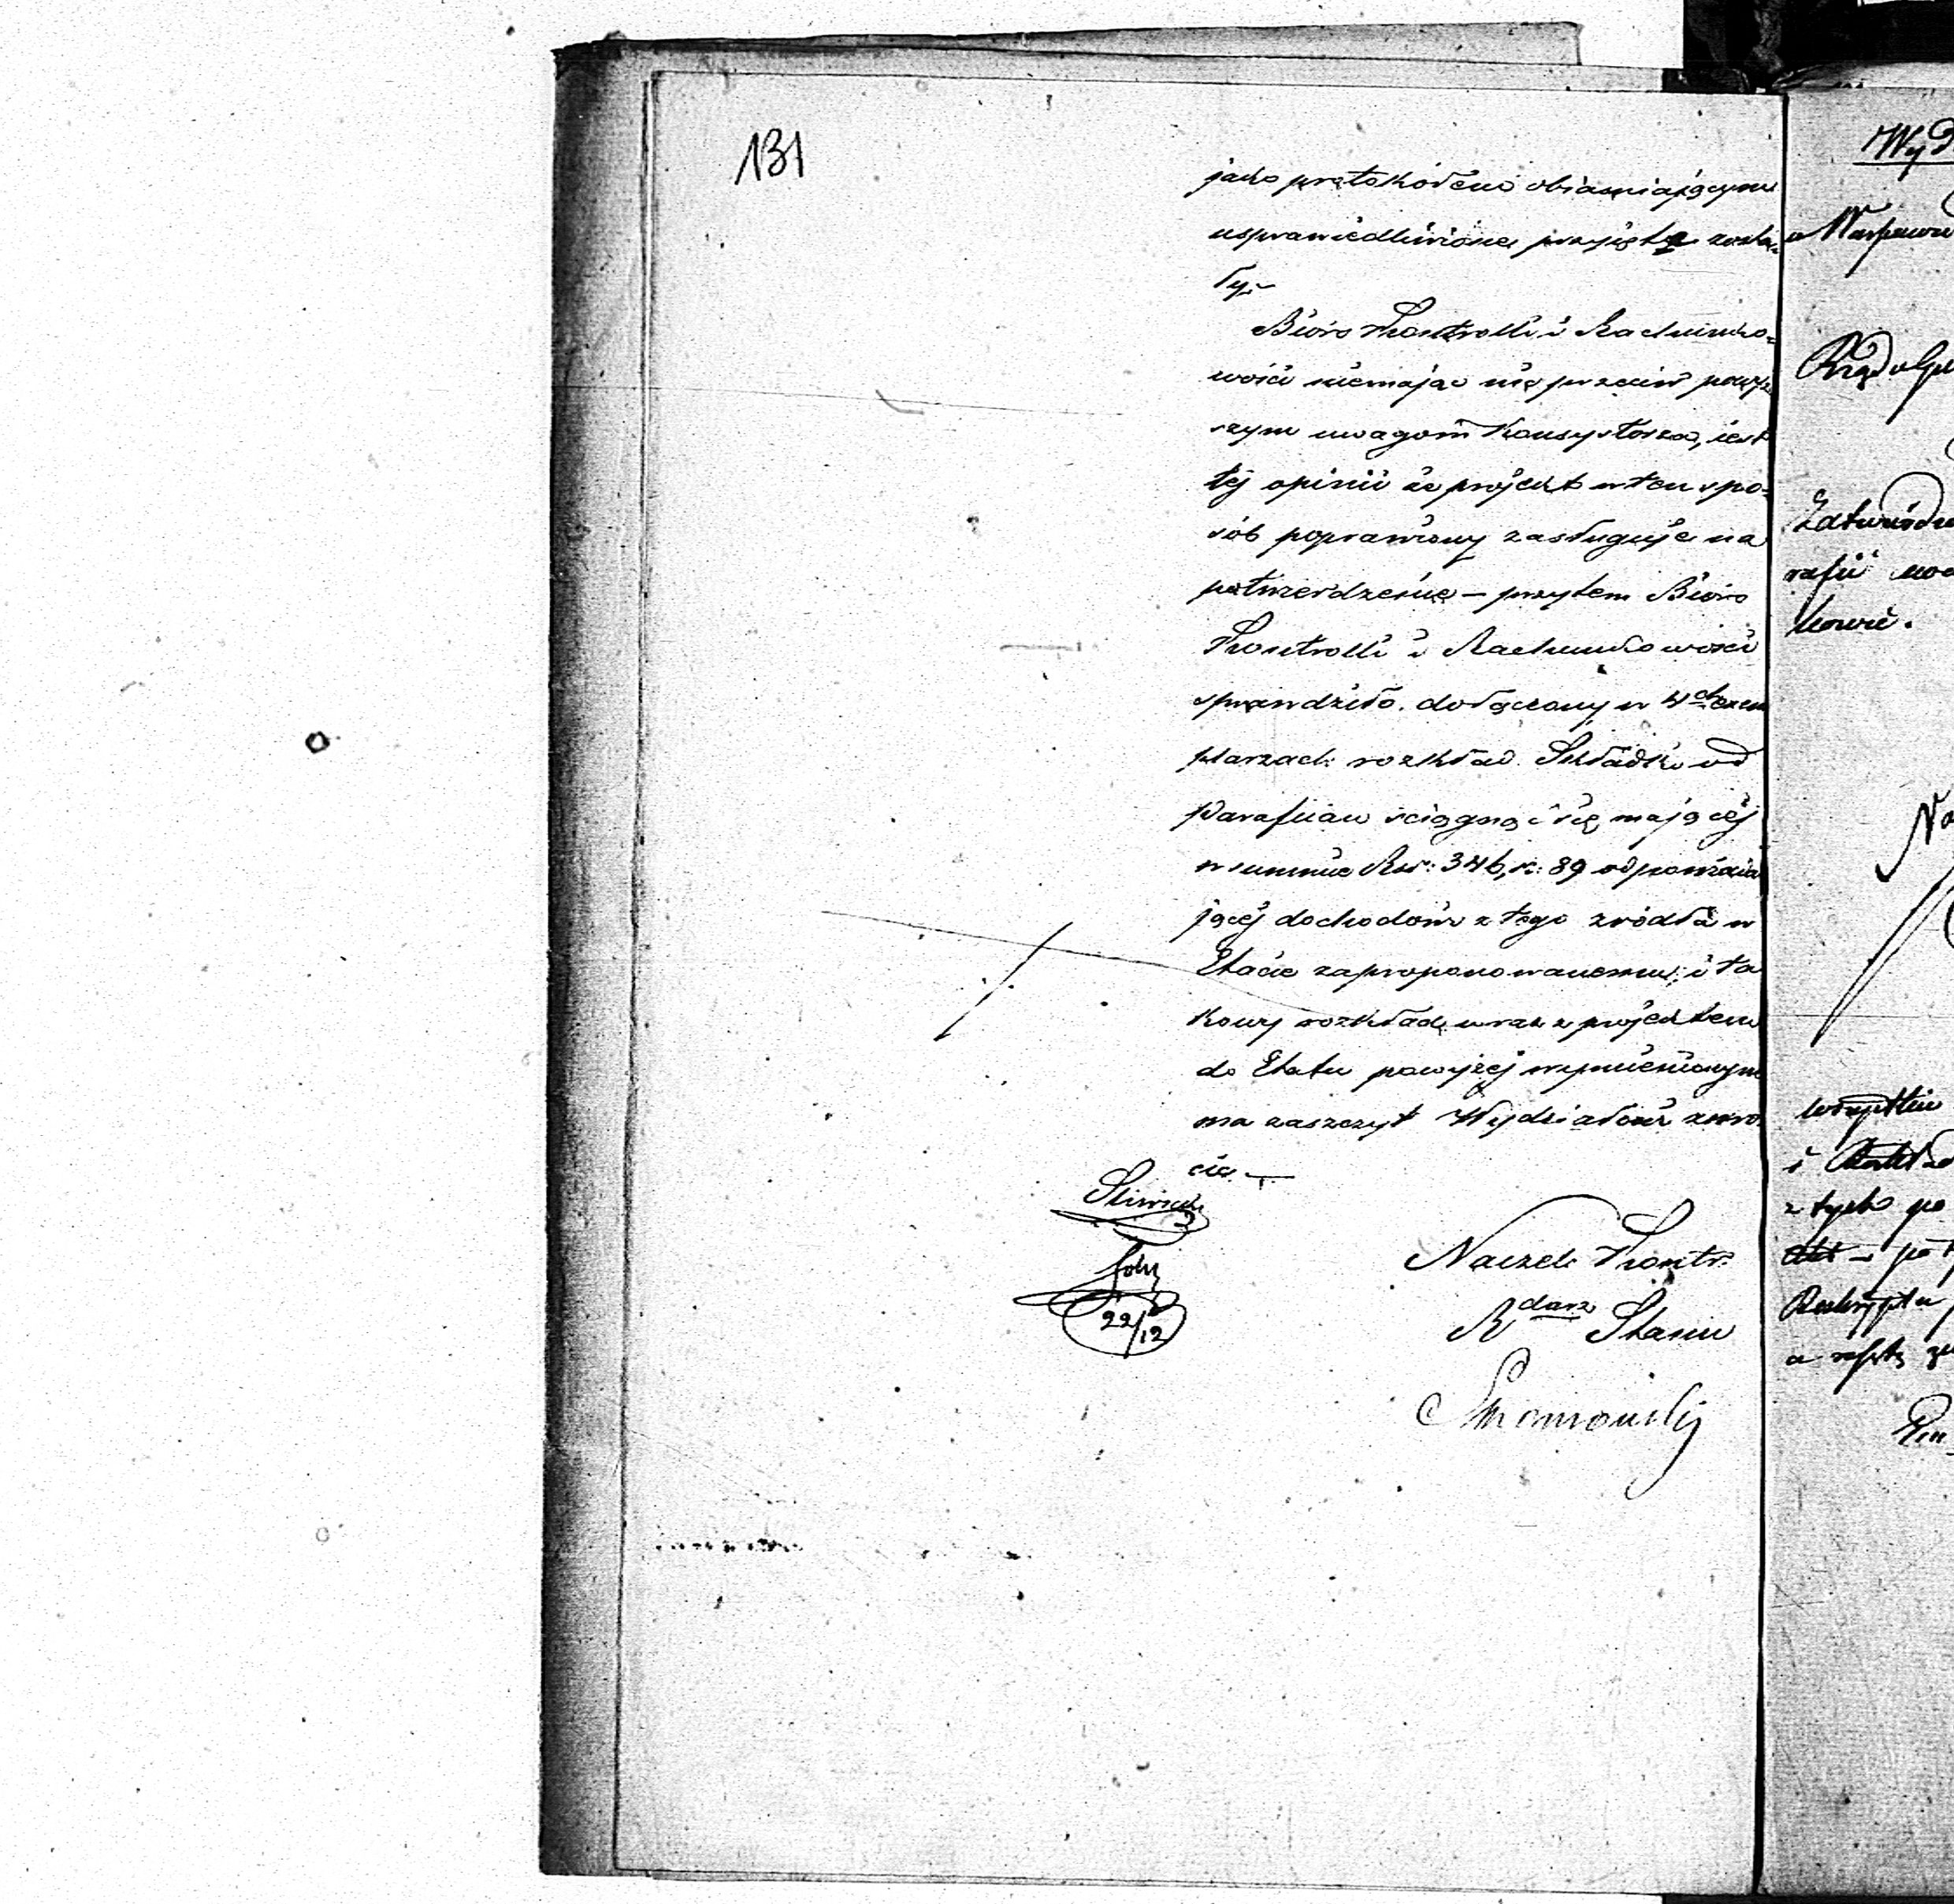 131
jako protokółem obiasniającym
usprawiedliwione przyięte zosta=
ły.–
Biuro Kontrolli i Rachunko=
wości niemając nic przeciw powyż
szym uwagom Konsystorza, iest
téj opinii że projekt w ten spo=
sób poprawiony zasługuje na
potwierdzenie – przytem Biuro
Kontrolli i Rachunkowości
sprawdziło dołączony w 4ch exem
plarzach rozkład Składki od
Parafian ściągnąć się mającéj
w summie Rsr: 346, k: 89 odpowiada
jącéj dochodowi z tego zródła w
Etacie zaproponowanemu; i ta
kowy rozkład wraz z projektem
do Etatu powyżéj wymienionym
ma zaszczyt Wydziałowi zwró
cić. —
22/12
Naczel: Kontr:
Rdarz Stanu
Wyd
w Warszawie
Rząd Gu
Zatwierdze
rafii
kowie.
wszystkie
i
z tych po
po
Reskryptu
a